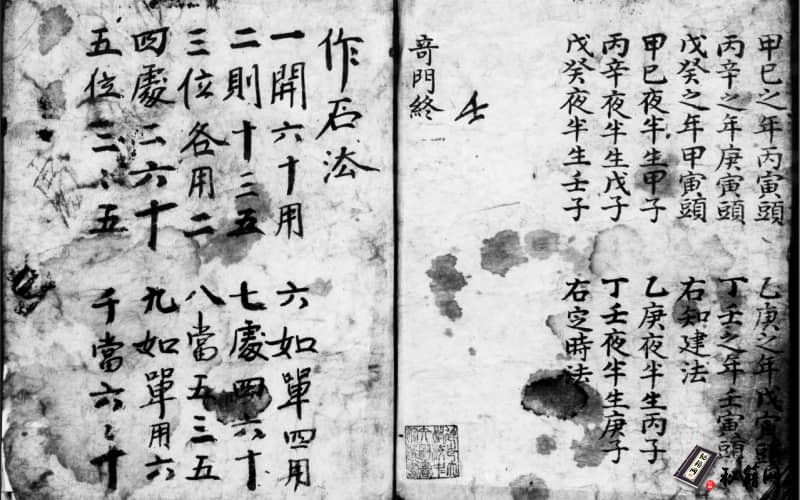 甲巳之年丙寅頭　乙庚之年戊寅頭
丙辛之年庚寅頭　丁壬之年壬寅頭
戊癸之年甲寅頭　右知建法
甲巳夜半生甲子　乙庚夜半生丙子
丙辛夜半生戊子　丁壬夜半生庚子
戊癸夜半生壬子　右定時法
奇門終
作石法
一開六十用　六如單四用
二則十三五　七處四六十
三位各用二　八當五三五
四處二六十　九如單用六
五位二〻五　千當六〻十
秘籍